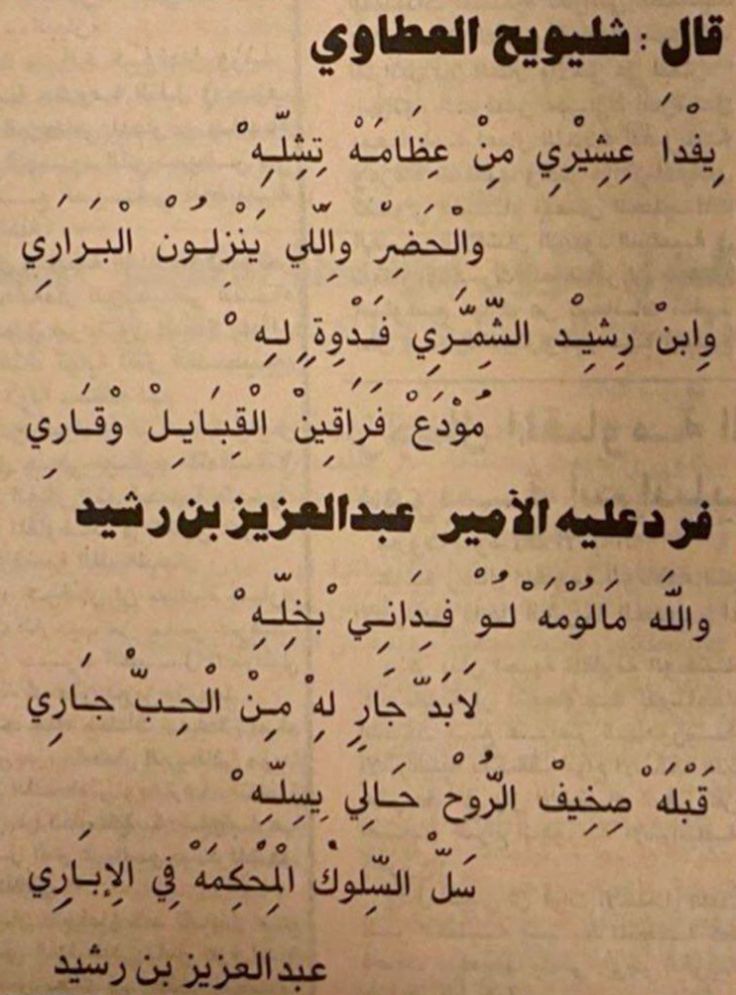 قال : شليويح العطاوي
يِفْدَا عِشِيْرِي مِنْ عِظَامَهْ تِشِلِّهْ
وِالْحَضِرْ وِاللِّي يَنْزِلُونْ الْبَرَارِي
وِابنْ رِشِيْد الشِّمِّرِي فَدْوِةٍ لِهْ
مُوْدَعْ فَرَاقِينْ الْقِبَايِلْ وْقَارِي
فرد عليه الأمير عبدالعزيز بن رشيد
واللَّه مَالُومَهْ لُوْ فِدَانِي بْخِلِّهْ
لاَبَدّ جَارٍ لِهْ مِنْ الْحِبّْ جَارِي
قَبْلَهْ صِخِيْف الرُّوحْ حَالِي يِسِلِّهْ
سَلّ السِّلُوكْ الْمِحْكِمَهْ فِي الإِبَارِي
عبدالعزيز بن رشيد